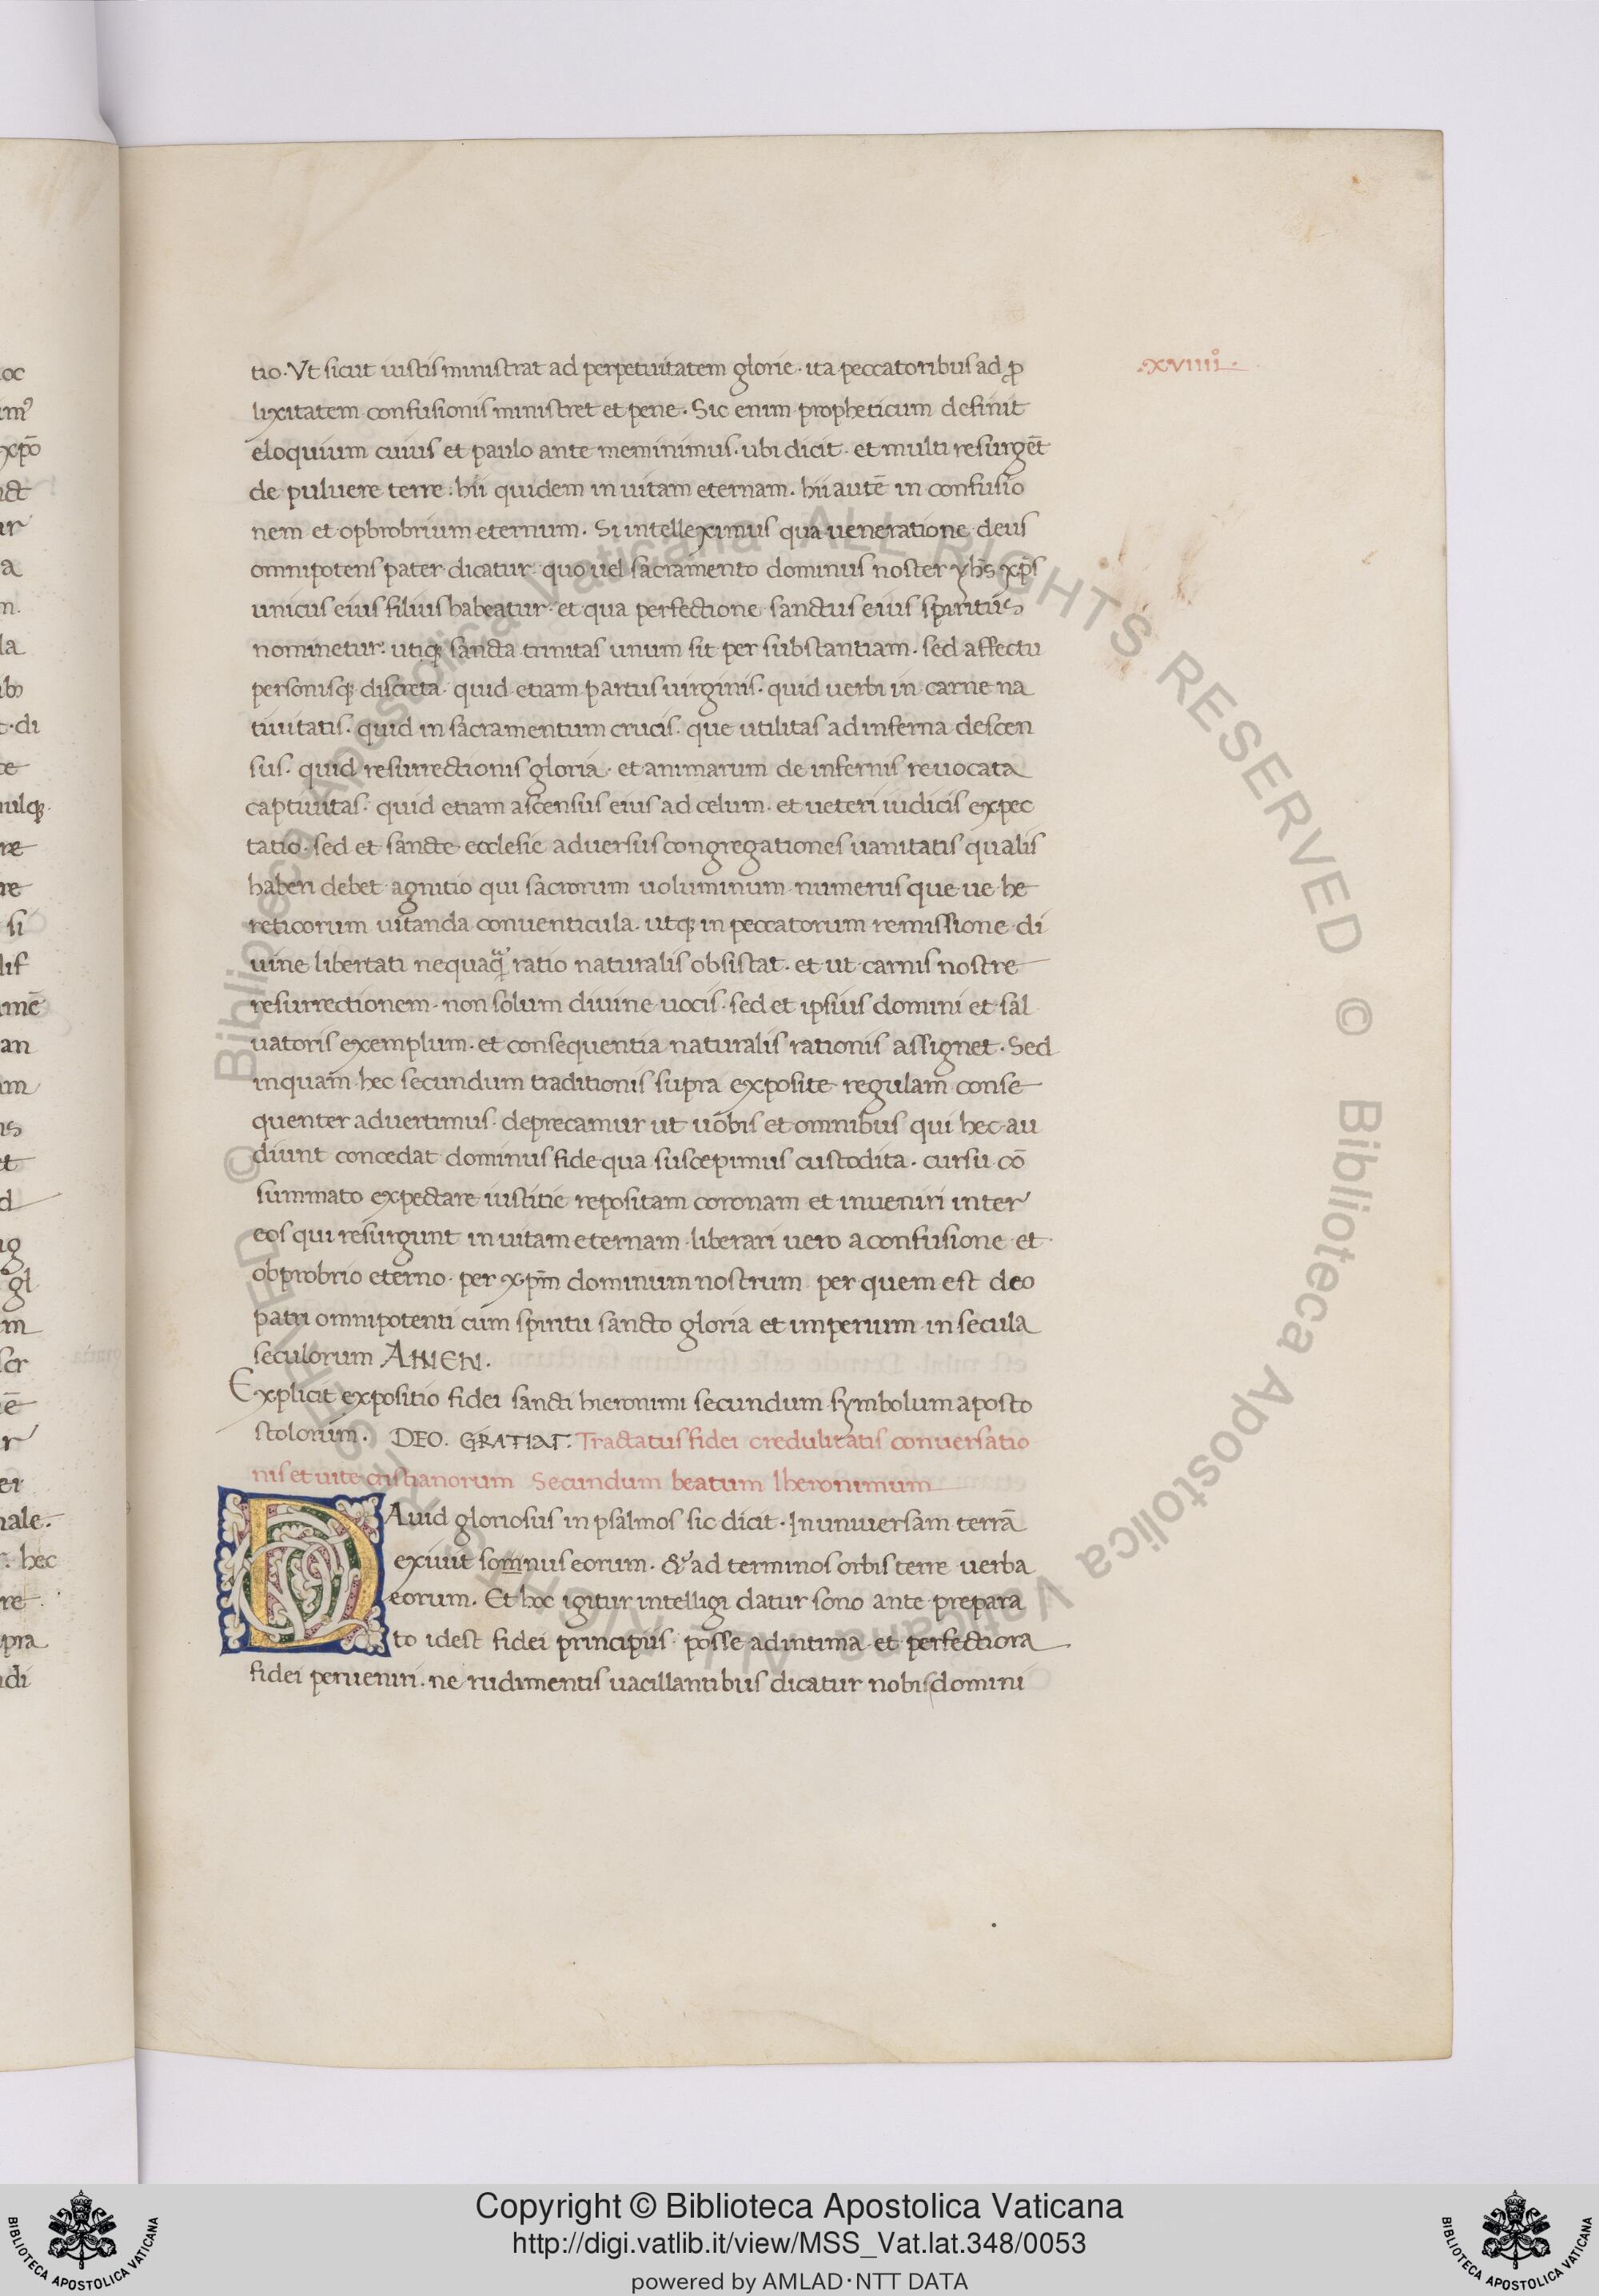 .xviiii°.
tio. Vt sicut iustis ministrat ad perpetuitatem glorie. ita peccatoribus ad ꝓ
lixitatem confusionis ministret et pene. Sic enim propheticum definit
eloquium cuius et paulo ante meminimus. ubi dicit. et multi resurgēt
de puluere terre: hii quidem in uitam eternam. hii autē in confusio
nem et opbrobrium eternum. Si intelleximus qua ueneratione deus
omnipotens pater dicatur. quo uel sacramento dominus noster yh̄s xp̄s
unicus eius filius habeatur. et qua perfectione sanctus eius spiritus
nominetur. utiqꝫ sancta trinitas unum sit per substantiam. sed affectu
personisqꝫ discreta. quid etiam partus uirginis. quid uerbi in carne na
tiuitatis. quid in sacramentum crucis. que utilitas ad inferna descen
sus. quid resurrectionis gloria. et animarum de infernis reuocata
captiuitas. quid etiam ascensus eius ad celum. et ueteri iudicis expec
tatio. sed et sancte ecclesie aduersus congregationes uanitatis qualis
haberi debet agnitio qui sacrorum uoluminum numerus que ue he
reticorum uitanda conuenticula. utqꝫ in peccatorum remissione di
uine libertati nequaq̃ ratio naturalis obsistat. et ut carnis nostre
resurrectionem. non solum diuine uocis. sed et ipsius domini et sal
uatoris exemplum. et consequentia naturalis rationis assignet. Sed
inquam hec secundum traditionis supra exposite regulam conse
quenter aduertimus. deprecamur ut uobis et omnibus qui hec au
diunt concedat dominus fide qua suscepimus custodita. cursu cō
summato expectare iustitie repositam coronam et inueniri inter
eos qui resurgunt in uitam eternam. liberari uero a confusione et
obprobrio eterno. per xp̄m dominum nostrum per quem est deo
patri omnipotenti cum spiritu sancto gloria et imperium in secula
seculorum AMEN.
Explicit expositio fidei sancti hieronimi secundum symbolum aposto
stolorum. DEO. GRATIAS. Tractatus fidei credulitatis conuersatio
nis et uite cristianorum Secundum beatum Iheronimum
DAuid gloriosus in psalmos sic dicit. In uniuersam terrā
exiuit somnus eorum. & ad terminos orbis terre uerba
eorum. Et hoc igitur intelligi datur sono ante prepara
to idest fidei principiis posse ad intima et perfectiora
fidei perueniri. ne rudimentis uacillantibus dicatur nobis domini
© Biblioteca Apostolica Vaticana ALL RIGHTS RESERVED © Biblioteca Apostolica Vaticana ALL RIGHTS RESERVED
Copyright © Biblioteca Apostolica Vaticana
http://digi.vatlib.it/view/MSS_Vat.lat.348/0053
powered by AMLAD·NTT DATA
BIBLIOTECA APOSTOLICA VATICANA
BIBLIOTECA APOSTOLICA VATICANA